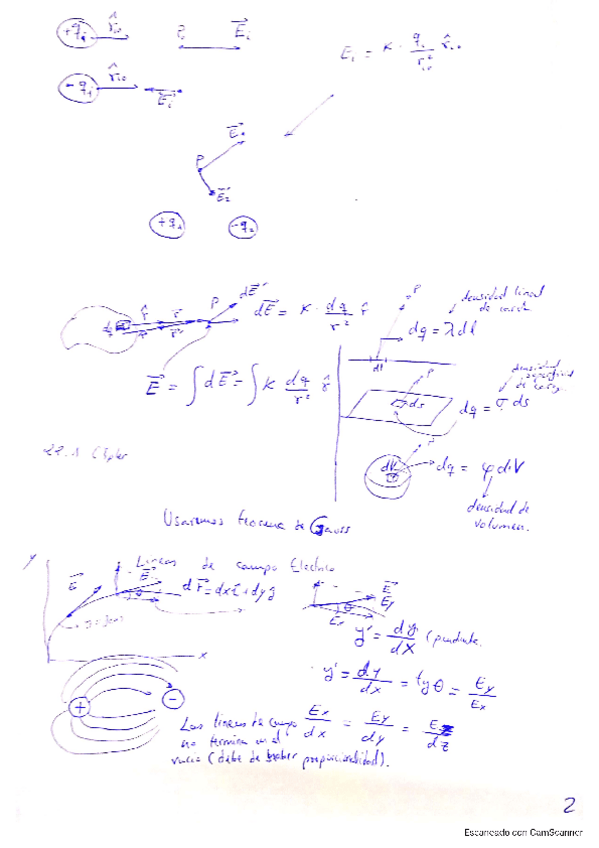 +q₁ r̂₁₀ P₀ E⃗ᵢ
Eᵢ = K · qᵢ/r²ᵢ₀ r̂ᵢ₀
-q r̂ᵢ₀ E⃗ᵢ
P
E⃗₂
+q₁ -q₂
r̂ r⃗ P dE⃗
dE⃗ = K · dq/r² r̂
P densidad lineal
de
dl dq = λdl
E⃗ = ∫dE⃗ = ∫K dq/r² r̂
P densidad superficial
de
ds dq = σ ds
dV dq = φ dV
densidad de
volumen.
Usaremos teorema de Gauss
Líneas de campo Electrico
y E⃗ E⃗ θ dr⃗ = dx î + dy ĵ
E⃗ Ey
Ex θ
x
y' = dy/dX (pendiente.
y' = dy/dx = tg θ = Ey/Ex
+ -
Las líneas de campo
no termina en el
vacio (debe de haber proporcionalidad).
Ex/dx = Ey/dy = Ez/dz
2
Escaneado con CamScanner